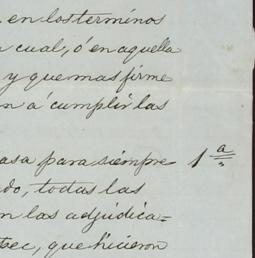 en los terminos
cual, ó en aquella
y que mas firme
n á cumplir las
asa para siempre 1ª
do, todas las
n las adjudica=
tec, que hicieron